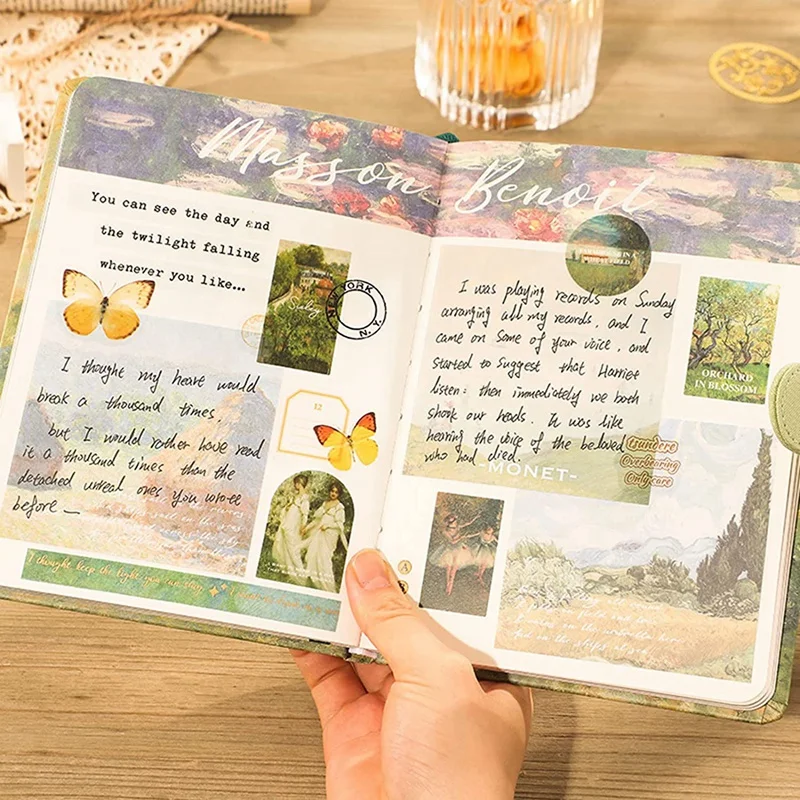 Masson Benoit
You can see the day and
the twilight falling
whenever you like...
Sisley
NEW YORK
N.Y.
I thought my heart would
break a thousand times,
but I would rather have read
it a thousand times than the
detached unreal ones you wrote
before —
12
I thought keep the light you can stay
I was playing records on Sunday
arranging all my records, and I
came on some of your voice, and
started to suggest that Harriet
listen: then immediately we both
shook our heads. It was like
hearing the voice of the beloved
who had died.
-MONET-
ORCHARD
IN BLOSSOM
tsundere
Overbearing
Only care
A